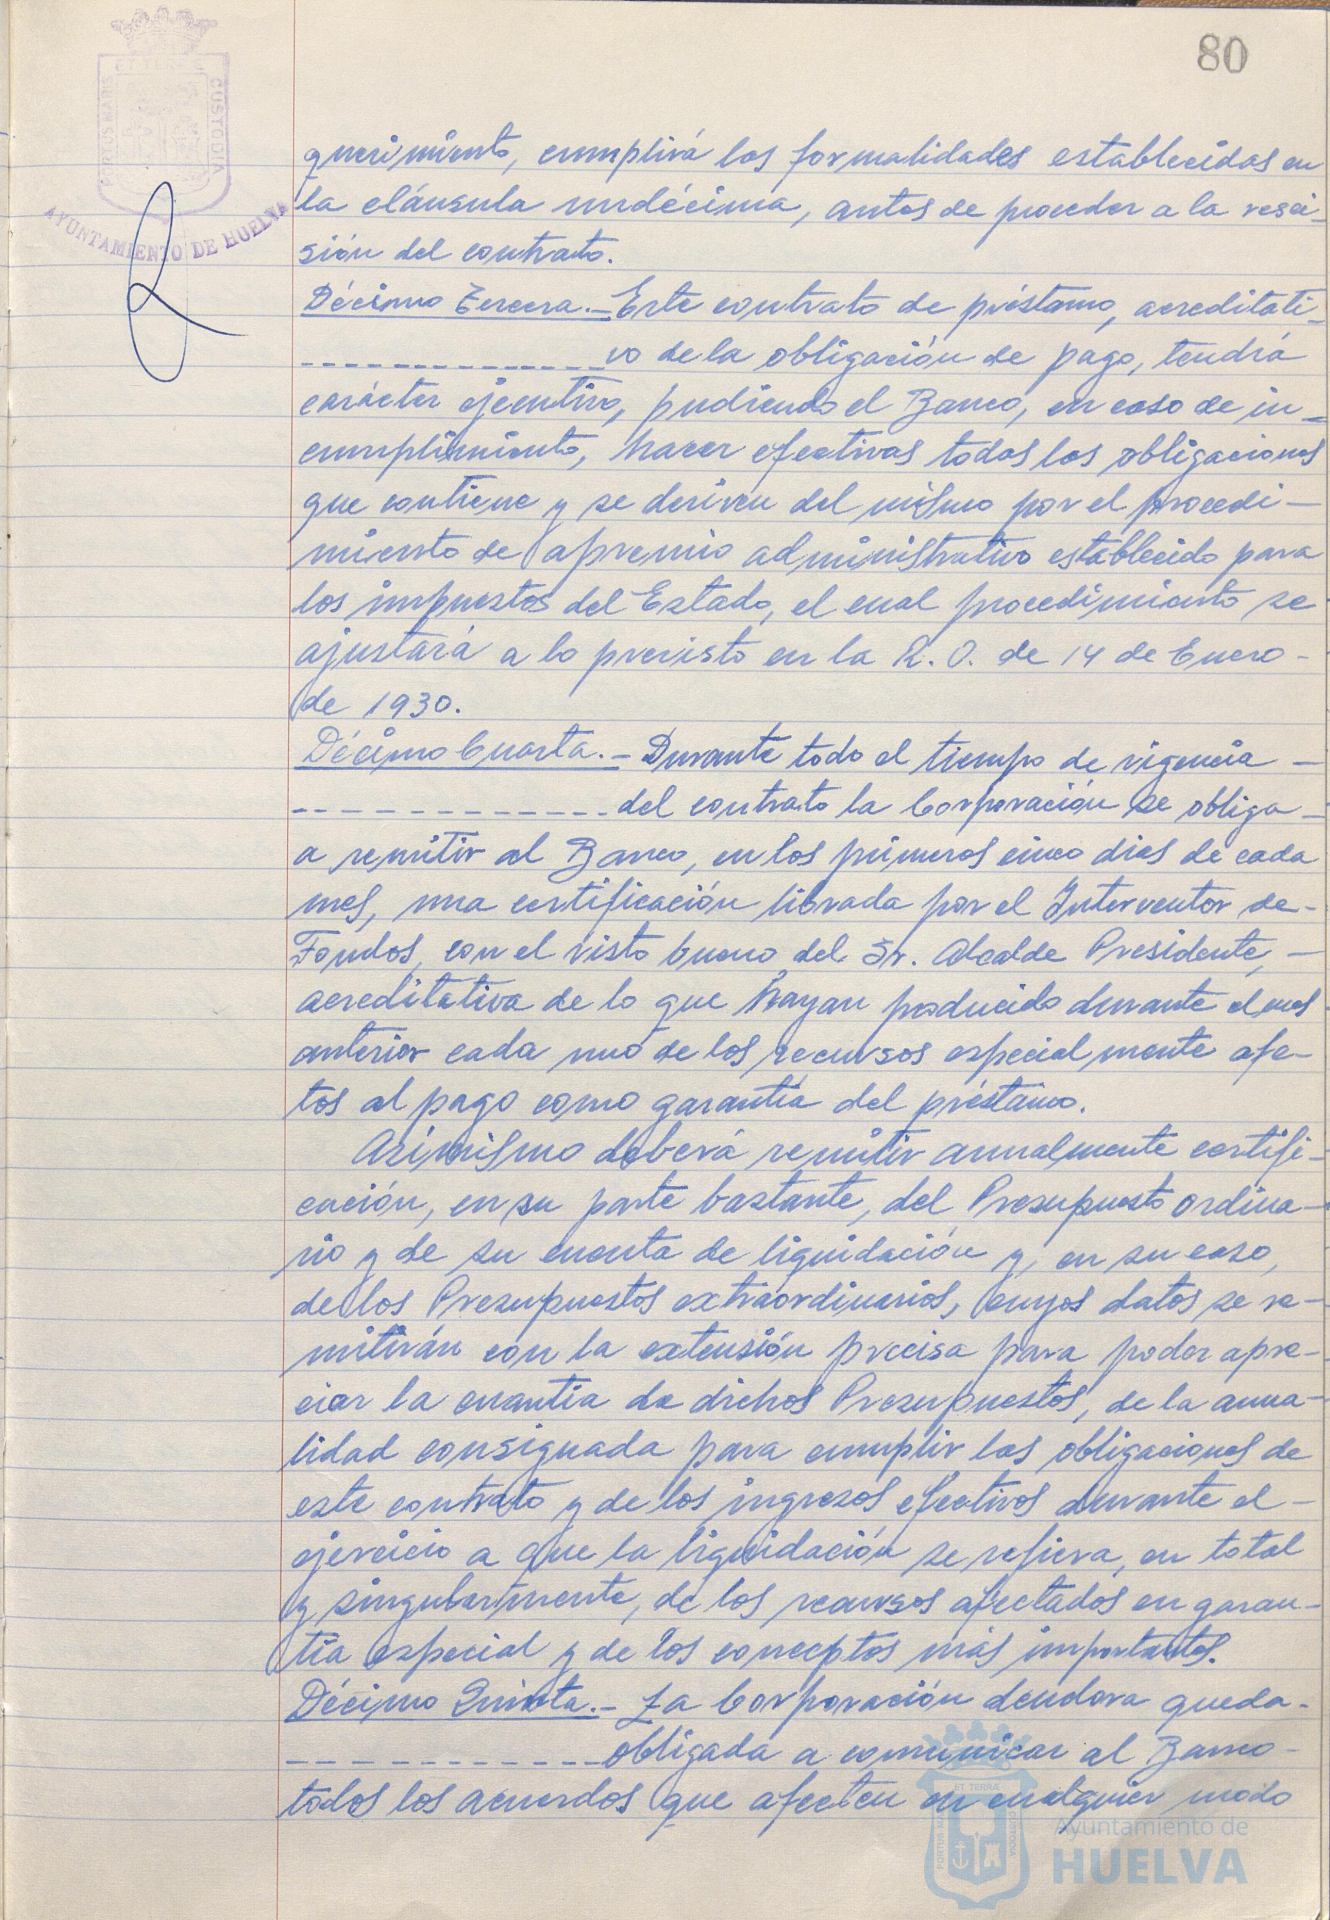 80
ET TERRE
PORTUS MARIS
CUSTODIA
AYUNTAMIENTO DE HUELVA
querimiento, cumplirá las formalidades establecidas en
la cláusula undécima, antes de proceder a la resci-
sión del contrato.
Décimo Tercera.- Este contrato de préstamo, acreditati-
vo de la obligación de pago, tendrá
carácter ejecutivo, pudiendo el Banco, en caso de in-
cumplimiento, hacer efectivas todas las obligaciones
que contiene y se deriven del mismo por el procedi-
miento de apremio administrativo establecido para
los impuestos del Estado, el cual procedimiento se
ajustará a lo previsto en la R. O. de 14 de Enero -
de 1930.
Décimo Cuarta.- Durante todo el tiempo de vigencia -
del contrato la Corporación se obliga -
a remitir al Banco, en los primeros cinco dias de cada
mes, una certificación librada por el Interventor de -
Fondos, con el visto bueno del Sr. Alcalde Presidente, -
acreditativa de lo que hayan producido durante el mes
anterior cada uno de los recursos especialmente afe-
tos al pago como garantía del préstamo.
Asimismo deberá remitir anualmente certifi-
cación, en su parte bastante, del Presupuesto ordina-
rio y de su cuenta de liquidación y, en su caso,
de los Presupuestos extraordinarios, cuyos datos se re-
mitirán con la extensión precisa para poder apre-
ciar la cuantía de dichos Presupuestos, de la anua-
lidad consignada para cumplir las obligaciones de
este contrato y de los ingresos efectivos durante el -
ejercicio a que la liquidación se refiera, en total
y singularmente, de los recursos afectados en garan-
tía especial y de los conceptos más importantes.
Décimo Quinta.- La Corporación deudora queda -
obligada a comunicar al Banco -
todos los acuerdos que afecten en cualquier modo
ET TERRA
CUSTODIA
Ayuntamiento de
HUELVA